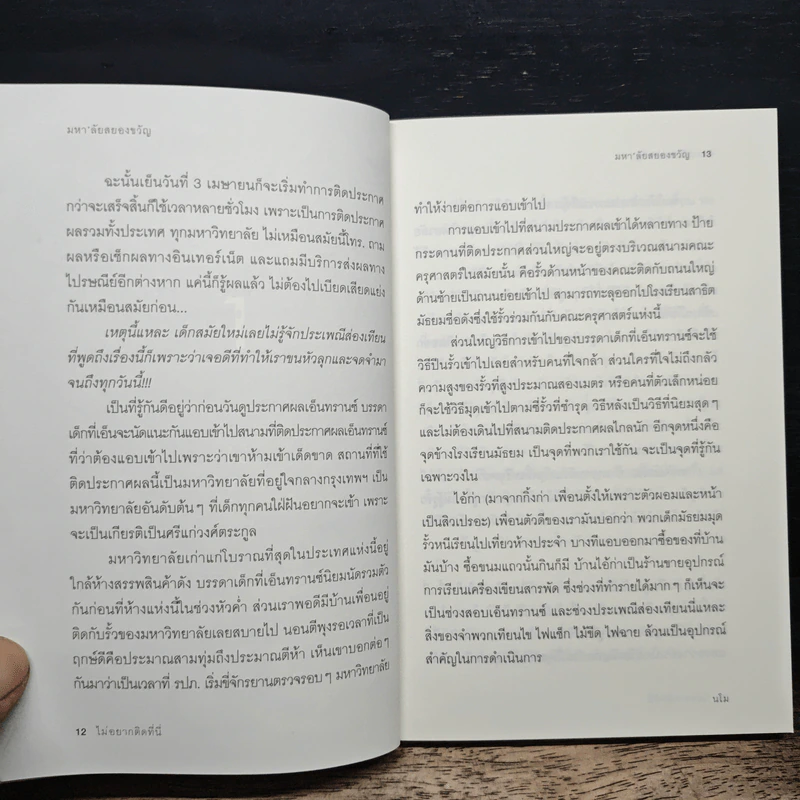 มหา'ลัยสยองขวัญ
ฉะนั้นเย็นวันที่ 3 เมษายนก็จะเริ่มทำการติดประกาศ
กว่าจะเสร็จสิ้นก็ใช้เวลาหลายชั่วโมง เพราะเป็นการติดประกาศ
ผลรวมทั้งประเทศ ทุกมหาวิทยาลัย ไม่เหมือนสมัยนี้โทร. ถาม
ผลหรือเช็กผลทางอินเทอร์เน็ต และแถมมีบริการส่งผลทาง
ไปรษณีย์อีกต่างหาก แค่นี้ก็รู้ผลแล้ว ไม่ต้องไปเบียดเสียดแย่ง
กันเหมือนสมัยก่อน...
เหตุนี้แหละ เด็กสมัยใหม่เลยไม่รู้จักประเพณีส่องเทียน
ที่พูดถึงเรื่องนี้ก็เพราะว่าเจอดีที่ทำให้เราขนหัวลุกและจดจำมา
จนถึงทุกวันนี้!!!
เป็นที่รู้กันดีอยู่ว่าก่อนวันดูประกาศผลเอ็นทรานซ์ บรรดา
เด็กที่เอ็นจะนัดแนะกันแอบเข้าไปสนามที่ติดประกาศผลเอ็นทรานซ์
ที่ว่าต้องแอบเข้าไปเพราะว่าเขาห้ามเข้าเด็ดขาด สถานที่ที่ใช้
ติดประกาศผลนี้เป็นมหาวิทยาลัยที่อยู่ใจกลางกรุงเทพฯ เป็น
มหาวิทยาลัยอันดับต้นๆ ที่เด็กทุกคนใฝ่ฝันอยากจะเข้า เพราะ
จะเป็นเกียรติเป็นศรีแก่วงศ์ตระกูล
มหาวิทยาลัยเก่าแก่โบราณที่สุดในประเทศแห่งนี้อยู่
ใกล้ห้างสรรพสินค้าดัง บรรดาเด็กที่เอ็นทรานซ์นิยมนัดรวมตัว
กันก่อนที่ห้างแห่งนี้ในช่วงหัวค่ำ ส่วนเราพอดีมีบ้านเพื่อนอยู่
ติดกับรั้วของมหาวิทยาลัยเลยสบายไป นอนตีพุงรอเวลาที่เป็น
ฤกษ์ดีคือประมาณสามทุ่มถึงประมาณตีห้า เห็นเขาบอกต่อๆ
กันมาว่าเป็นเวลาที่ รปภ. เริ่มขี่จักรยานตรวจรอบๆ มหาวิทยาลัย
12 ไม่อยากติดที่นี่
มหา'ลัยสยองขวัญ 13
ทำให้ง่ายต่อการแอบเข้าไป
การแอบเข้าไปที่สนามประกาศผลเข้าได้หลายทาง ป้าย
กระดานที่ติดประกาศส่วนใหญ่จะอยู่ตรงบริเวณสนามคณะ
ครุศาสตร์ในสมัยนั้น คือรั้วด้านหน้าของคณะติดกับถนนใหญ่
ด้านซ้ายเป็นถนนย่อยเข้าไป สามารถทะลุออกไปโรงเรียนสาธิต
มัธยมชื่อดังซึ่งใช้รั้วร่วมกันกับคณะครุศาสตร์แห่งนี้
ส่วนใหญ่วิธีการเข้าไปของบรรดาเด็กที่เอ็นทรานซ์จะใช้
วิธีปีนรั้วเข้าไปเลยสำหรับคนที่ใจกล้า ส่วนใครที่ใจไม่ถึงกลัว
ความสูงของรั้วที่สูงประมาณสองเมตร หรือคนที่ตัวเล็กหน่อย
ก็จะใช้วิธีมุดเข้าไปตามซี่รั้วที่ชำรุด วิธีหลังเป็นวิธีที่นิยมสุดๆ
และไม่ต้องเดินไปที่สนามติดประกาศผลไกลนัก อีกจุดหนึ่งคือ
จุดข้างโรงเรียนมัธยม เป็นจุดที่พวกเราใช้กัน จะเป็นจุดที่รู้กัน
เฉพาะวงใน
ไอ้ก่า (มาจากกิ้งก่า เพื่อนตั้งให้เพราะตัวผอมและหน้า
เป็นสิวเปรอะ) เพื่อนตัวดีของเรามันบอกว่า พวกเด็กมัธยมมุด
รั้วหนีเรียนไปเที่ยวห้างประจำ บางทีแอบออกมาซื้อของที่บ้าน
มันบ้าง ซื้อขนมแถวนั้นกินก็มี บ้านไอ้ก่าเป็นร้านขายอุปกรณ์
การเรียนเครื่องเขียนสารพัด ซึ่งช่วงที่ทำรายได้มากๆ ก็เห็นจะ
เป็นช่วงสอบเอ็นทรานซ์ และช่วงประเพณีส่องเทียนนี่แหละ
สิ่งของจำพวกเทียนไข ไฟแช็ก ไม้ขีด ไฟฉาย ล้วนเป็นอุปกรณ์
สำคัญในการดำเนินการ
นโม